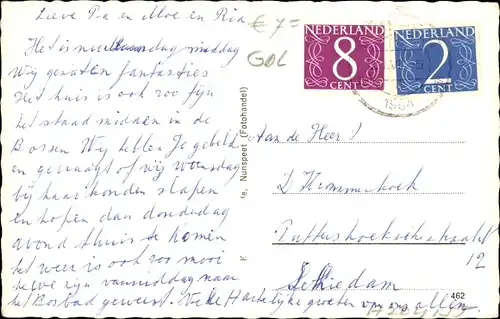 Lieve Pa en Moe en Ria
€ 7=
GOL
Het is nu Maandag middag
Wij genieten fantasties
Het huis is ook zoo fijn
het staat midden in de
Bossen Wij hebben Jo gebeld
en gevraagd of wij woensdag
bij haar konden slapen
en hopen dan donderdag
avond thuis te komen
het weer is ook zoo mooi
zijn vanmiddag naar
het Bosbad geweest. Hartelijke groeten van ons allen
NEDERLAND
8
CENT
NEDERLAND
2
CENT
1964
Aan de Heer
D Krommenhoek
12
Schiedam
fe, Nunspeet (Fotohandel)
K
462